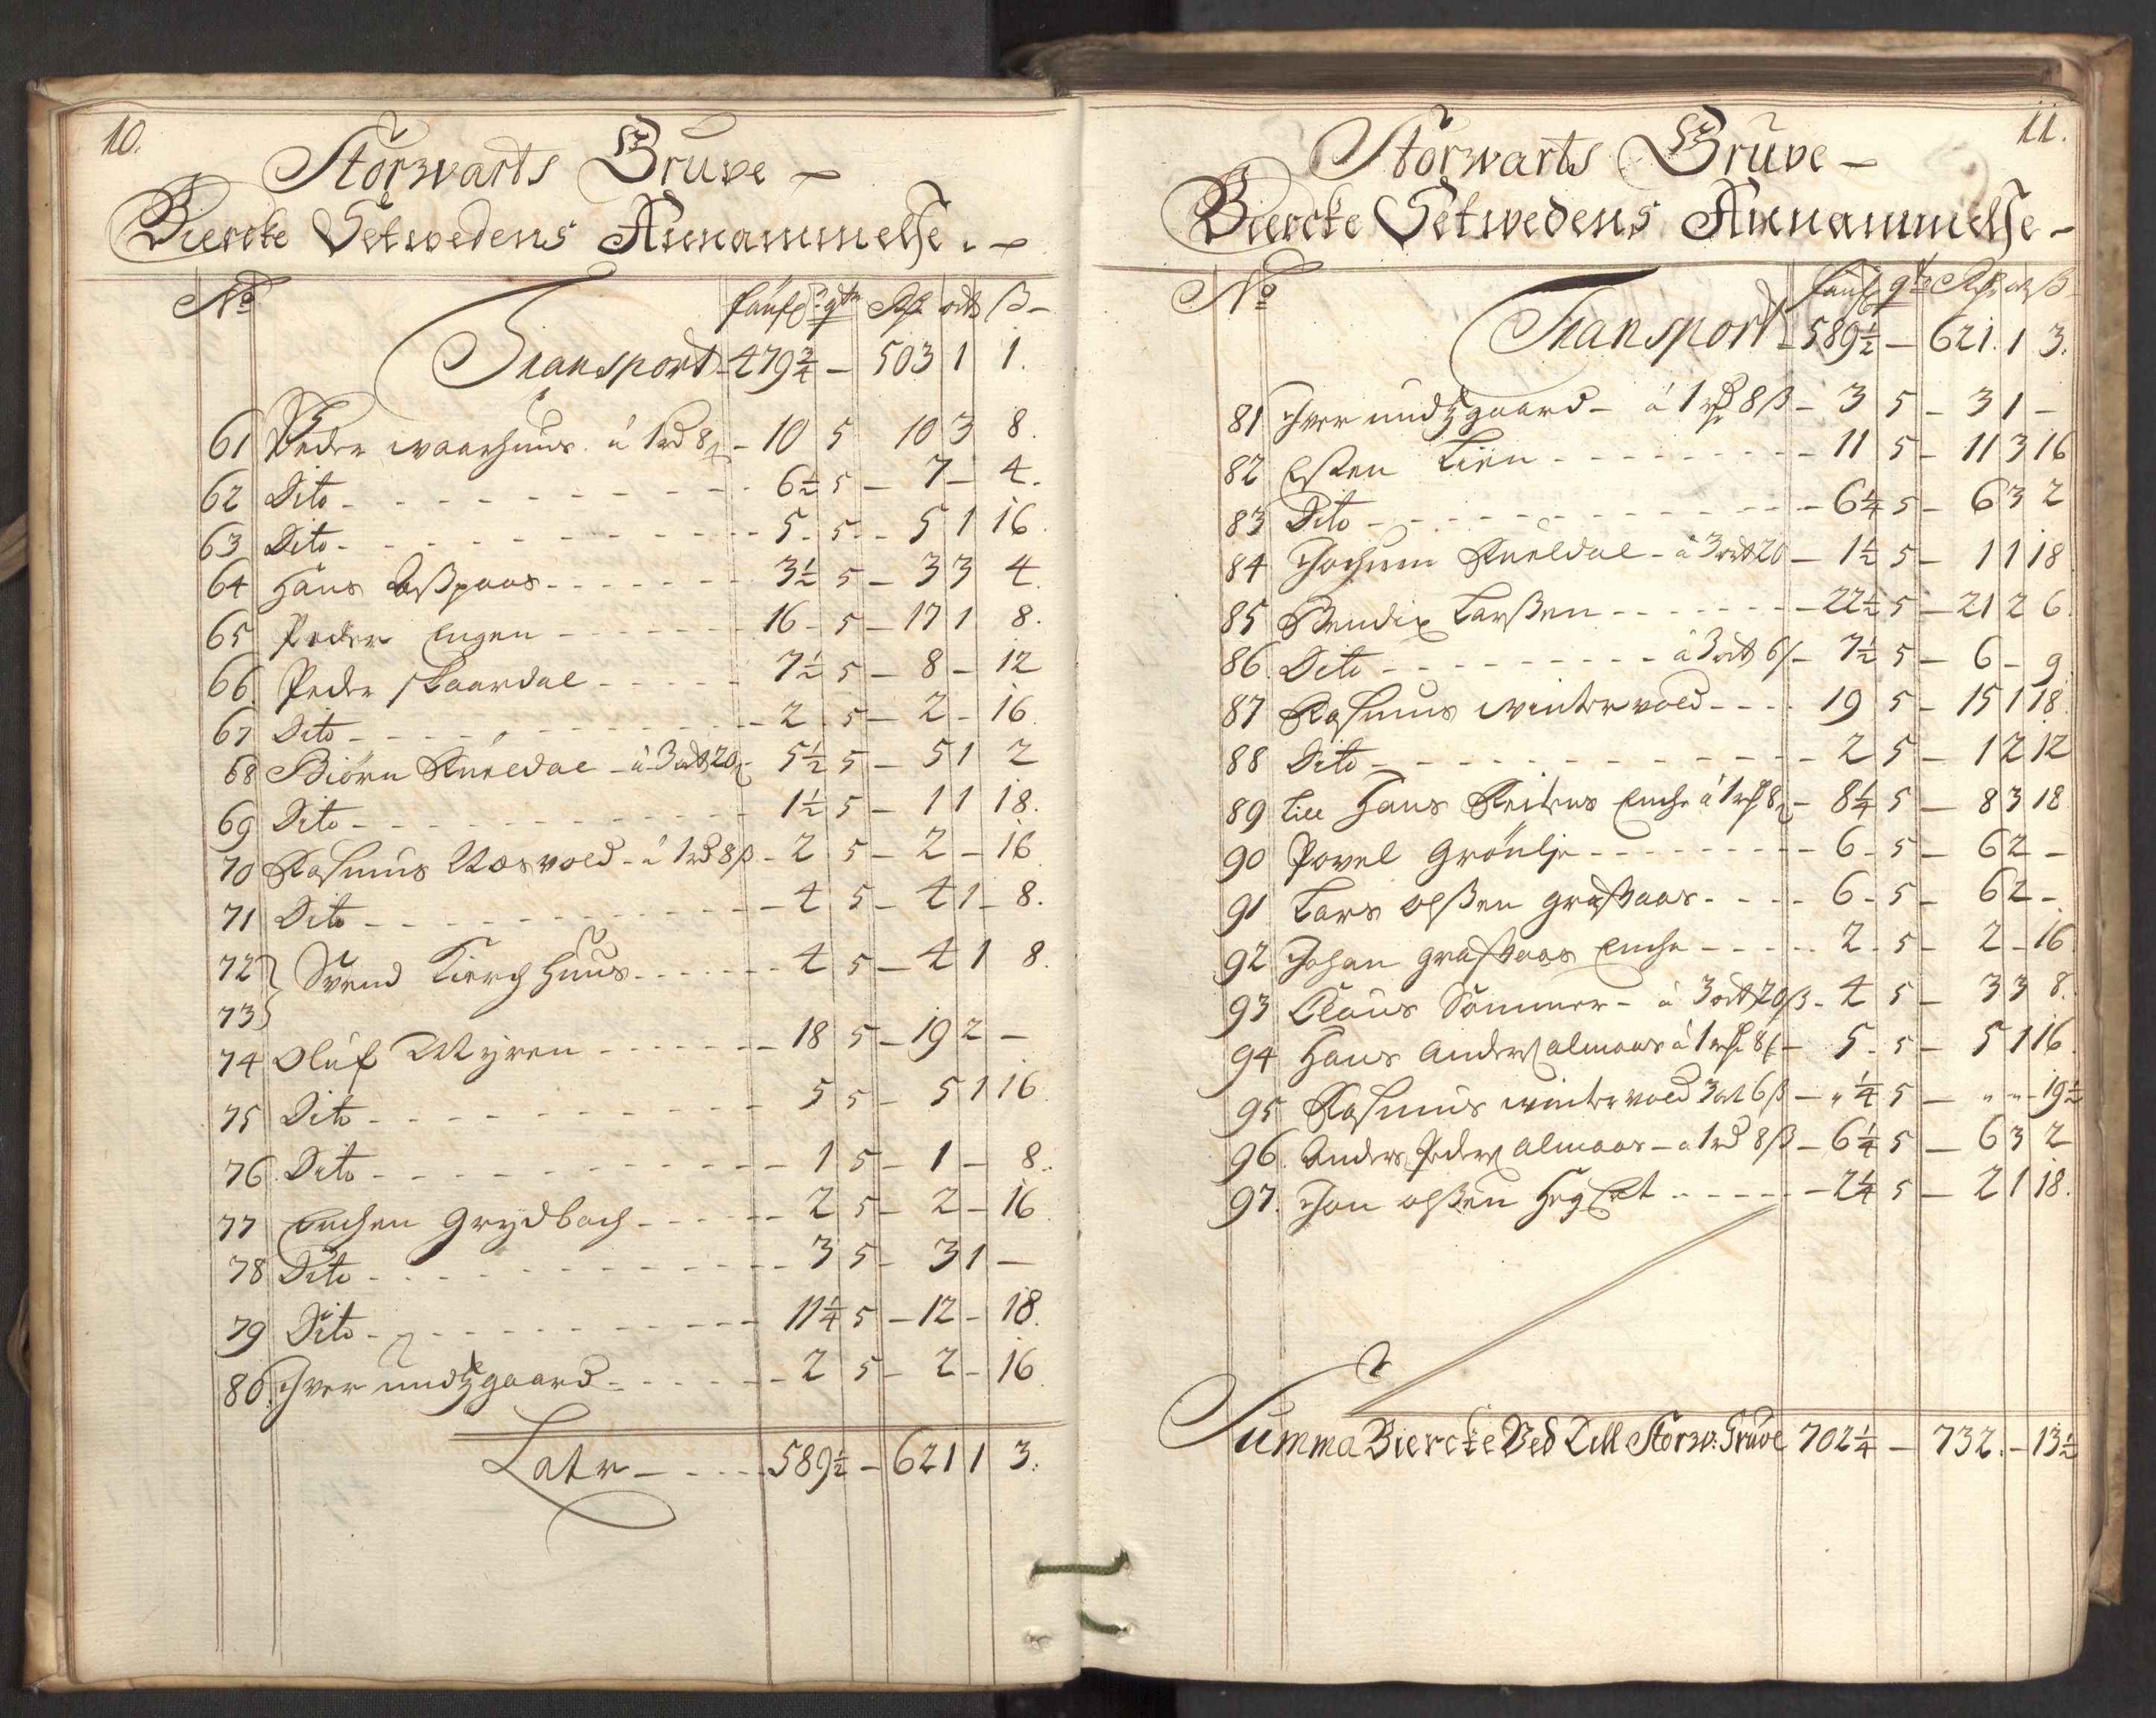 10.
Storwarts Gruve –
Biercke Setwedens Annammelse. –
No faufl: qtr Rdr ort ß –
Transport 479 3/4 – 503 1 1.
61 Peder waarhuus. á 1 rd 8 ß – 10 5 10 3 8.
62 Dito - - - 6 1/2 5 – 7 – 4.
63 Dito - - - 5 - 5 - 5 1 16.
64 Hans Aßpaas - - - 3 1/2 5 – 3 3 4.
65 Peder Engen - - - 16 - 5 – 17 1 8.
66. Peder skaardal - - - 7 1/2 5 – 8 – 12
67 Dito - - - 2 - 5 – 2 - 16.
68 Biörn Rueldal - á 3 ort 20 ß 5 1/2 5 – 5 1 2
69 Dito - - - 1 1/2 5 – 1 1 18.
70 Rasmus Aasvold - á 1 rd 8 ß - 2 5 – 2 – 16.
71 Dito - - - 4 5 – 4 1 – 8.
72 Svend Kierchhuus - - - 4 5 – 4 1 8.
73
74 Oluf Myren - - - 18 5 – 19 2 –
75 Dito - - - 5 5 – 5 1 16.
76. Dito - - - 1 5 – 1 – 8.
77 Enchen Grydbach - - - 2 5 – 2 – 16.
78 Dito - - - 3 5 – 3 1 –
79 Dito - - - 11 1/4 5 – 12 – 18.
80. Iver undtzgaard - - - 2 5 – 2 – 16.
Latr – - - - 589 1/2 – 621 1 3.
11.
Storwarts Gruve –
Biercke Setwedens Annammelse –
No faufl qtr Rdr ort ß –
Transport – 589 1/2 – 621. 1 3.
81 Iver undtzgaard – á 1 rdr 8 ß – 3 5 – 3 1 –
82 Esten Lien - - - 11 5 – 11 3 16
83 Dito - - - 6 1/4 5 – 6 3 2
84 Jochum Rueldal – á 3 ort 20 – 1 1/2 5 – 1 1 18
85 Bendix Larßen - - - 22 1/2 5 – 21 2 6.
86. Dito - - - á 3 ort 6 ß – 7 1/2 5 – 6 – 9.
87 Rasmus wintervold - - - 19 5 – 15 1 18.
88 Dito - - - 2 5 – 1 2 12
89 Till Hans Reitans Enche á 1 rdr 8 ß – 8 1/4 5 – 8 3 18
90 Povel Grönlje - - - 6 - 5 – 6 2 –
91 Lars olßen graßaas - - - 6 - 5 – 6 2 –
92 Johan graßaas Enche - - - 2 - 5 – 2 – 16.
93 Claus Sommer – á 3 ort 20 ß – 4 5 – 3 3 8.
94 Hans Anders almaas á 1 rdr 8 ß – 5 - 5 – 5 1 16.
95 Rasmus wintervold 3 ort 6 ß – " 1/4 5 – " " – 19 1/2
96. Anders Peders almaas – á 1 rd 8 ß – 6 1/4 5 – 6 3 2
97. Jon olßen - - - 2 1/4 5 – 2 1 18.
Summa Biercke Ved Till Storw: Gruve 702 1/4 – 732. – 13 1/2